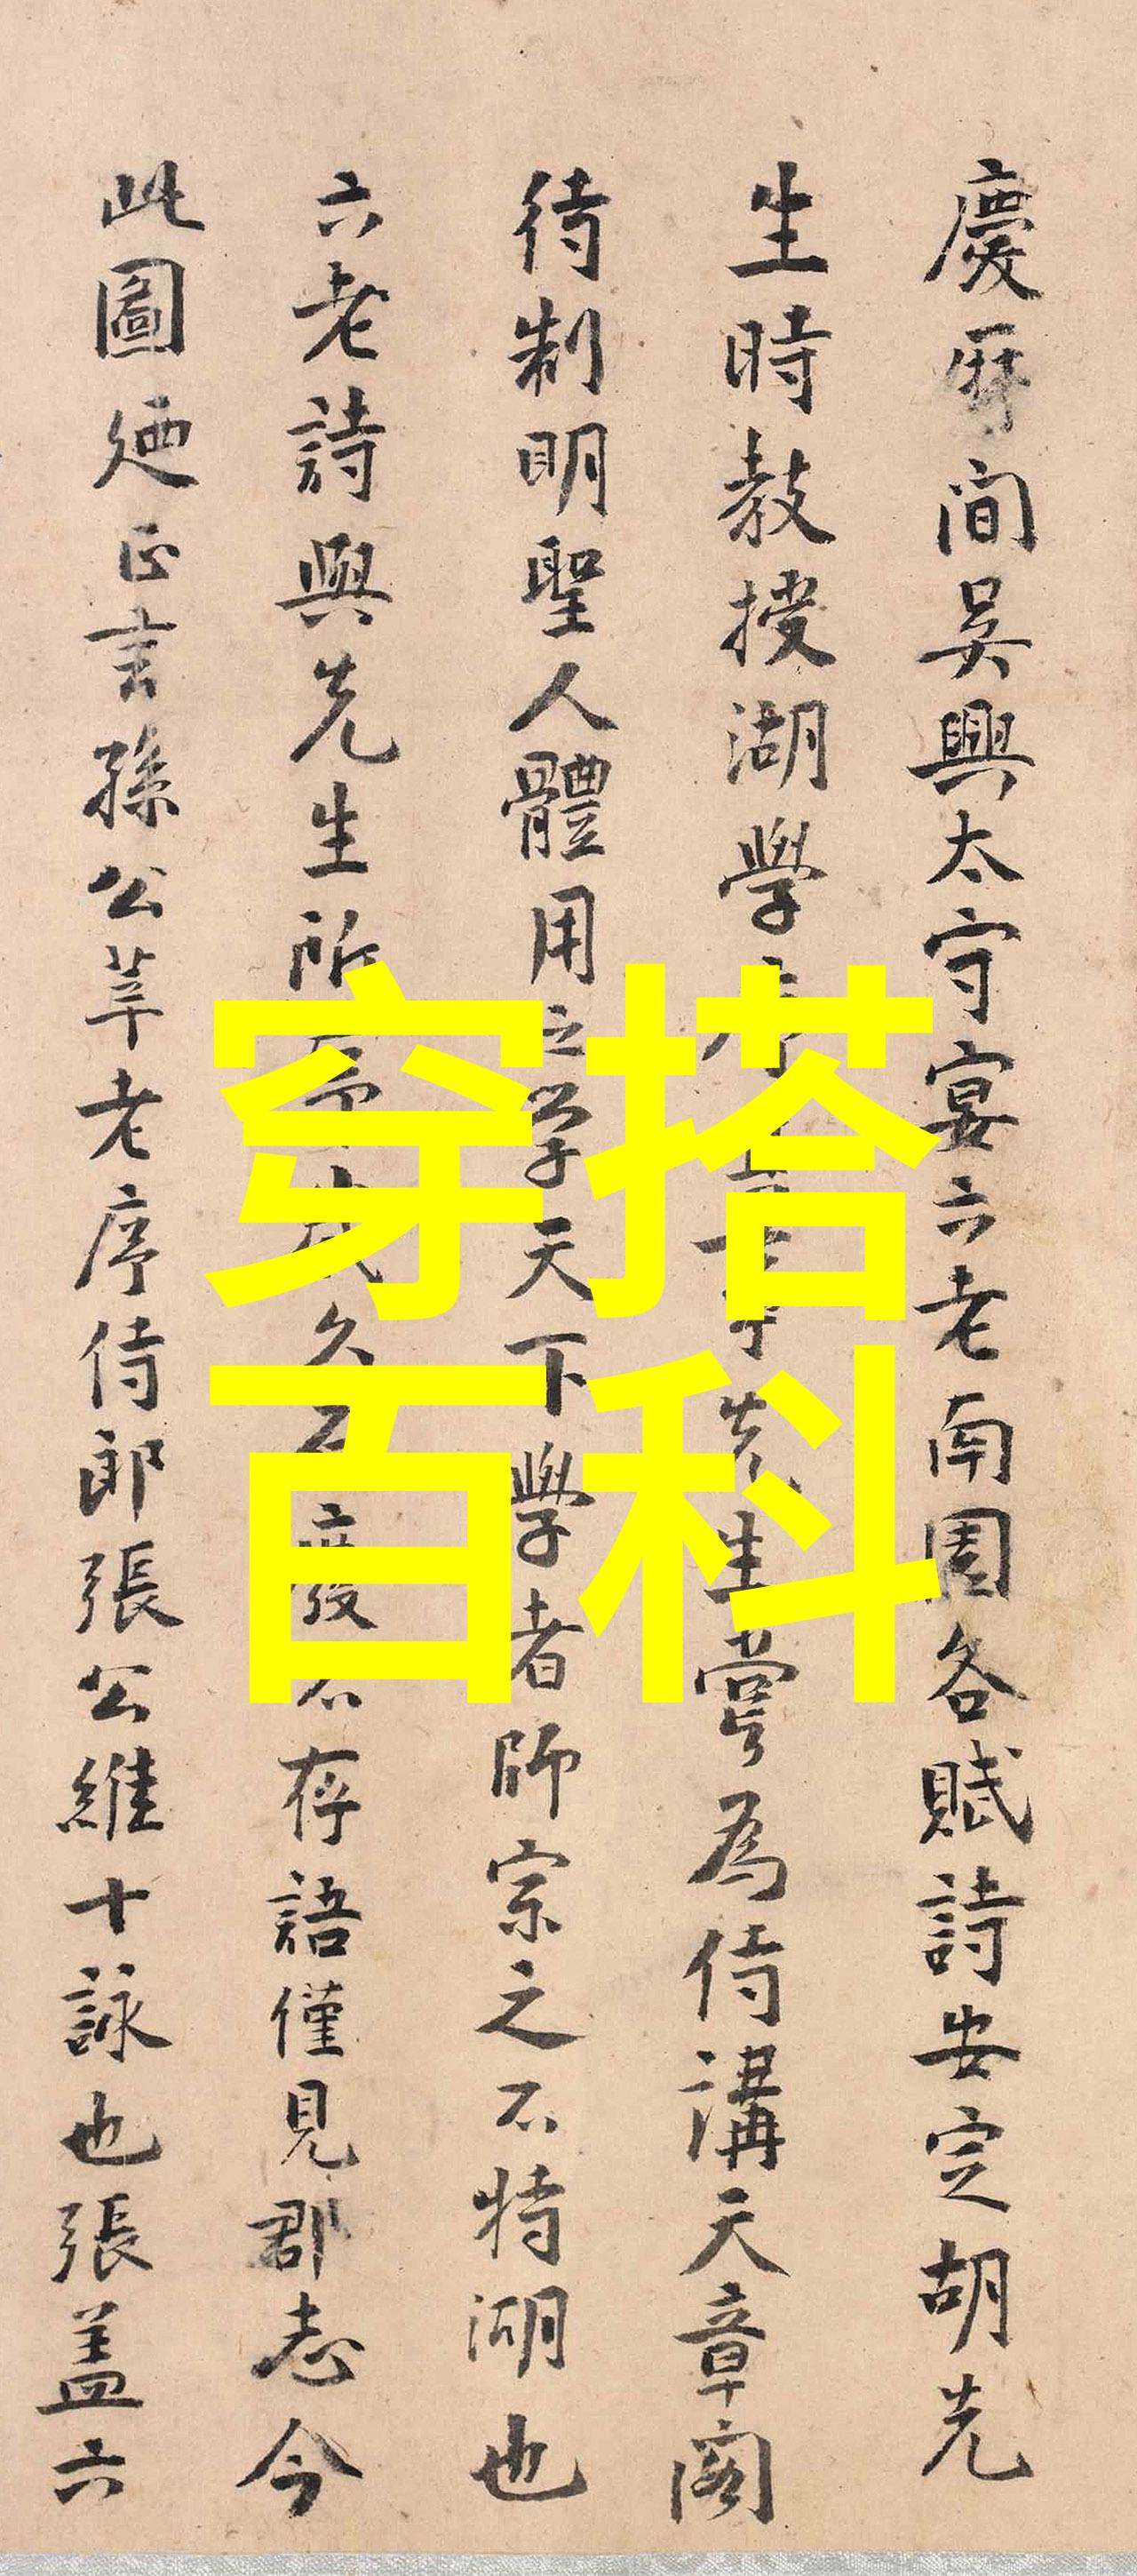 慶曆間吳興太守宴六老南園各賦詩安定胡先
生時教授湖學
先生嘗為侍講天章閣
待制明聖人體用之学天下學者師宗之不特湖也
六老詩與先生所
久
廢不存語僅見郡志今
此圖廼正言孫公莘老序侍郎張公維十詠也張蓋六
穿搭
百科